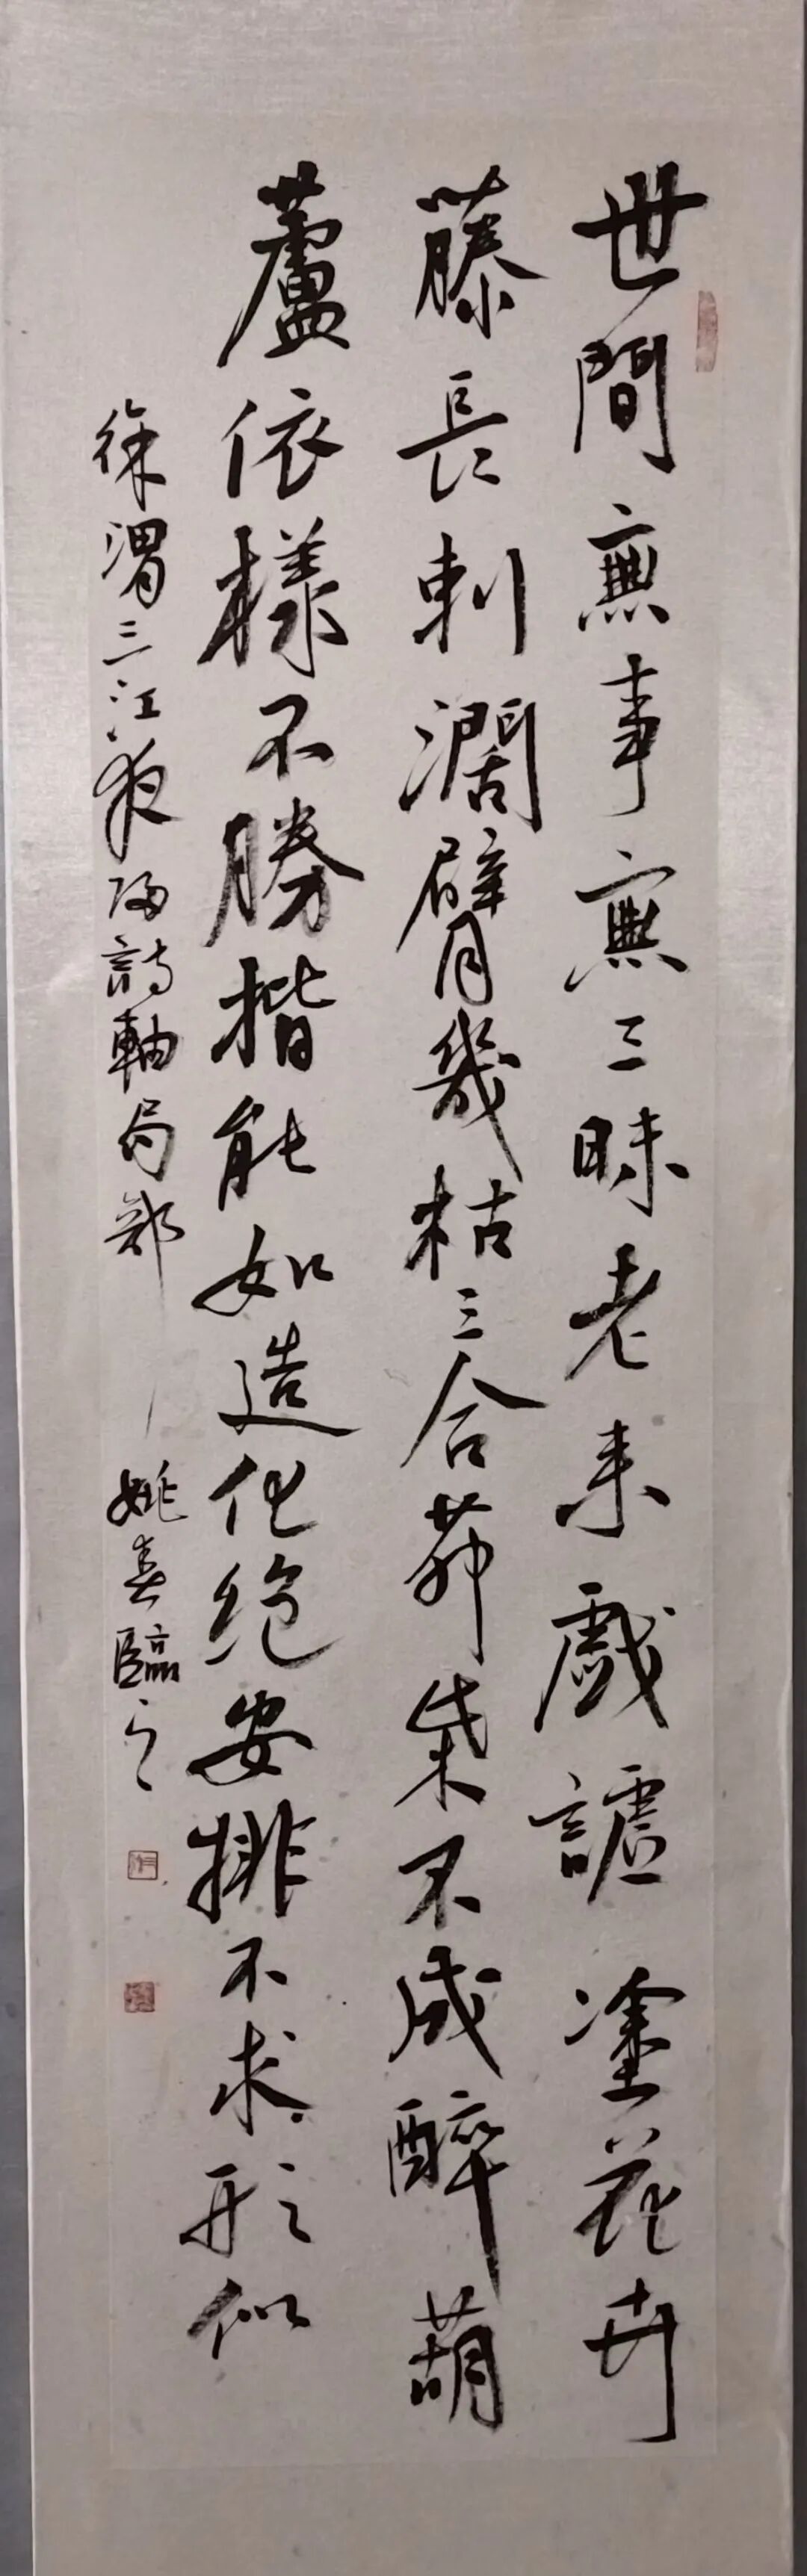 世間無事無三昧老来戲謔塗花卉
藤長刺闊臂幾枯三合茅柴不成醉葫
蘆依樣不勝揩能如造化絶安排不求形似
徐渭三江夜歸詩軸局部 姚喜臨之